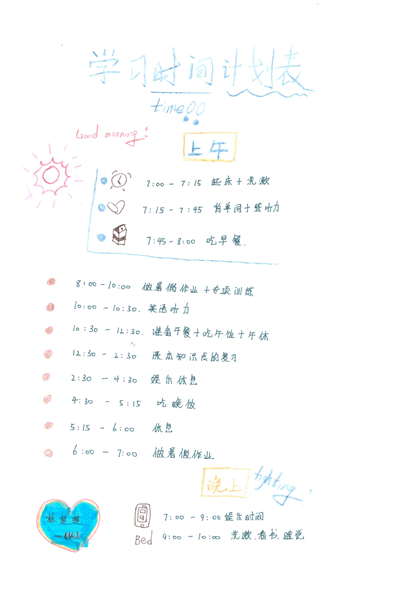 学习时间计划表
time
Good morning!
上午
7:00 - 7:15 起床+洗漱
7:15 - 7:45 背单词+练听力
7:45 - 8:00 吃早餐.
8:00 - 10:00 做暑假作业+专项训练
10:00 - 10:30. 英语听力
10:30 - 12:30. 准备午餐+吃午饭+午休
12:30 - 2:30 课本知识点的复习
2:30 - 4:30 娱乐休息
4:30 - 5:15 吃晚饭
5:15 - 6:00 休息
6:00 - 7:00 做暑假作业
晚上
fighting!
7:00 - 9:00 娱乐时间
Bed 9:00 - 10:00 洗漱.看书.睡觉